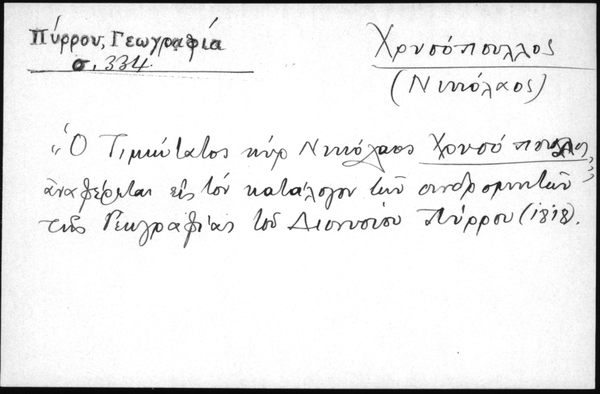 Πύρρου, Γεωγραφία
σ. 334
Χρυσόπουλλος
(Νικόλαος)
"Ὁ Τιμιώτατος κύρ Νικόλαος Χρυσόπουλλος"
ἀναφέρεται εἰς τὸν κατάλογον τῶν συνδρομητῶν
τῆς Γεωγραφίας τοῦ Διονυσίου Πύρρου (1818).